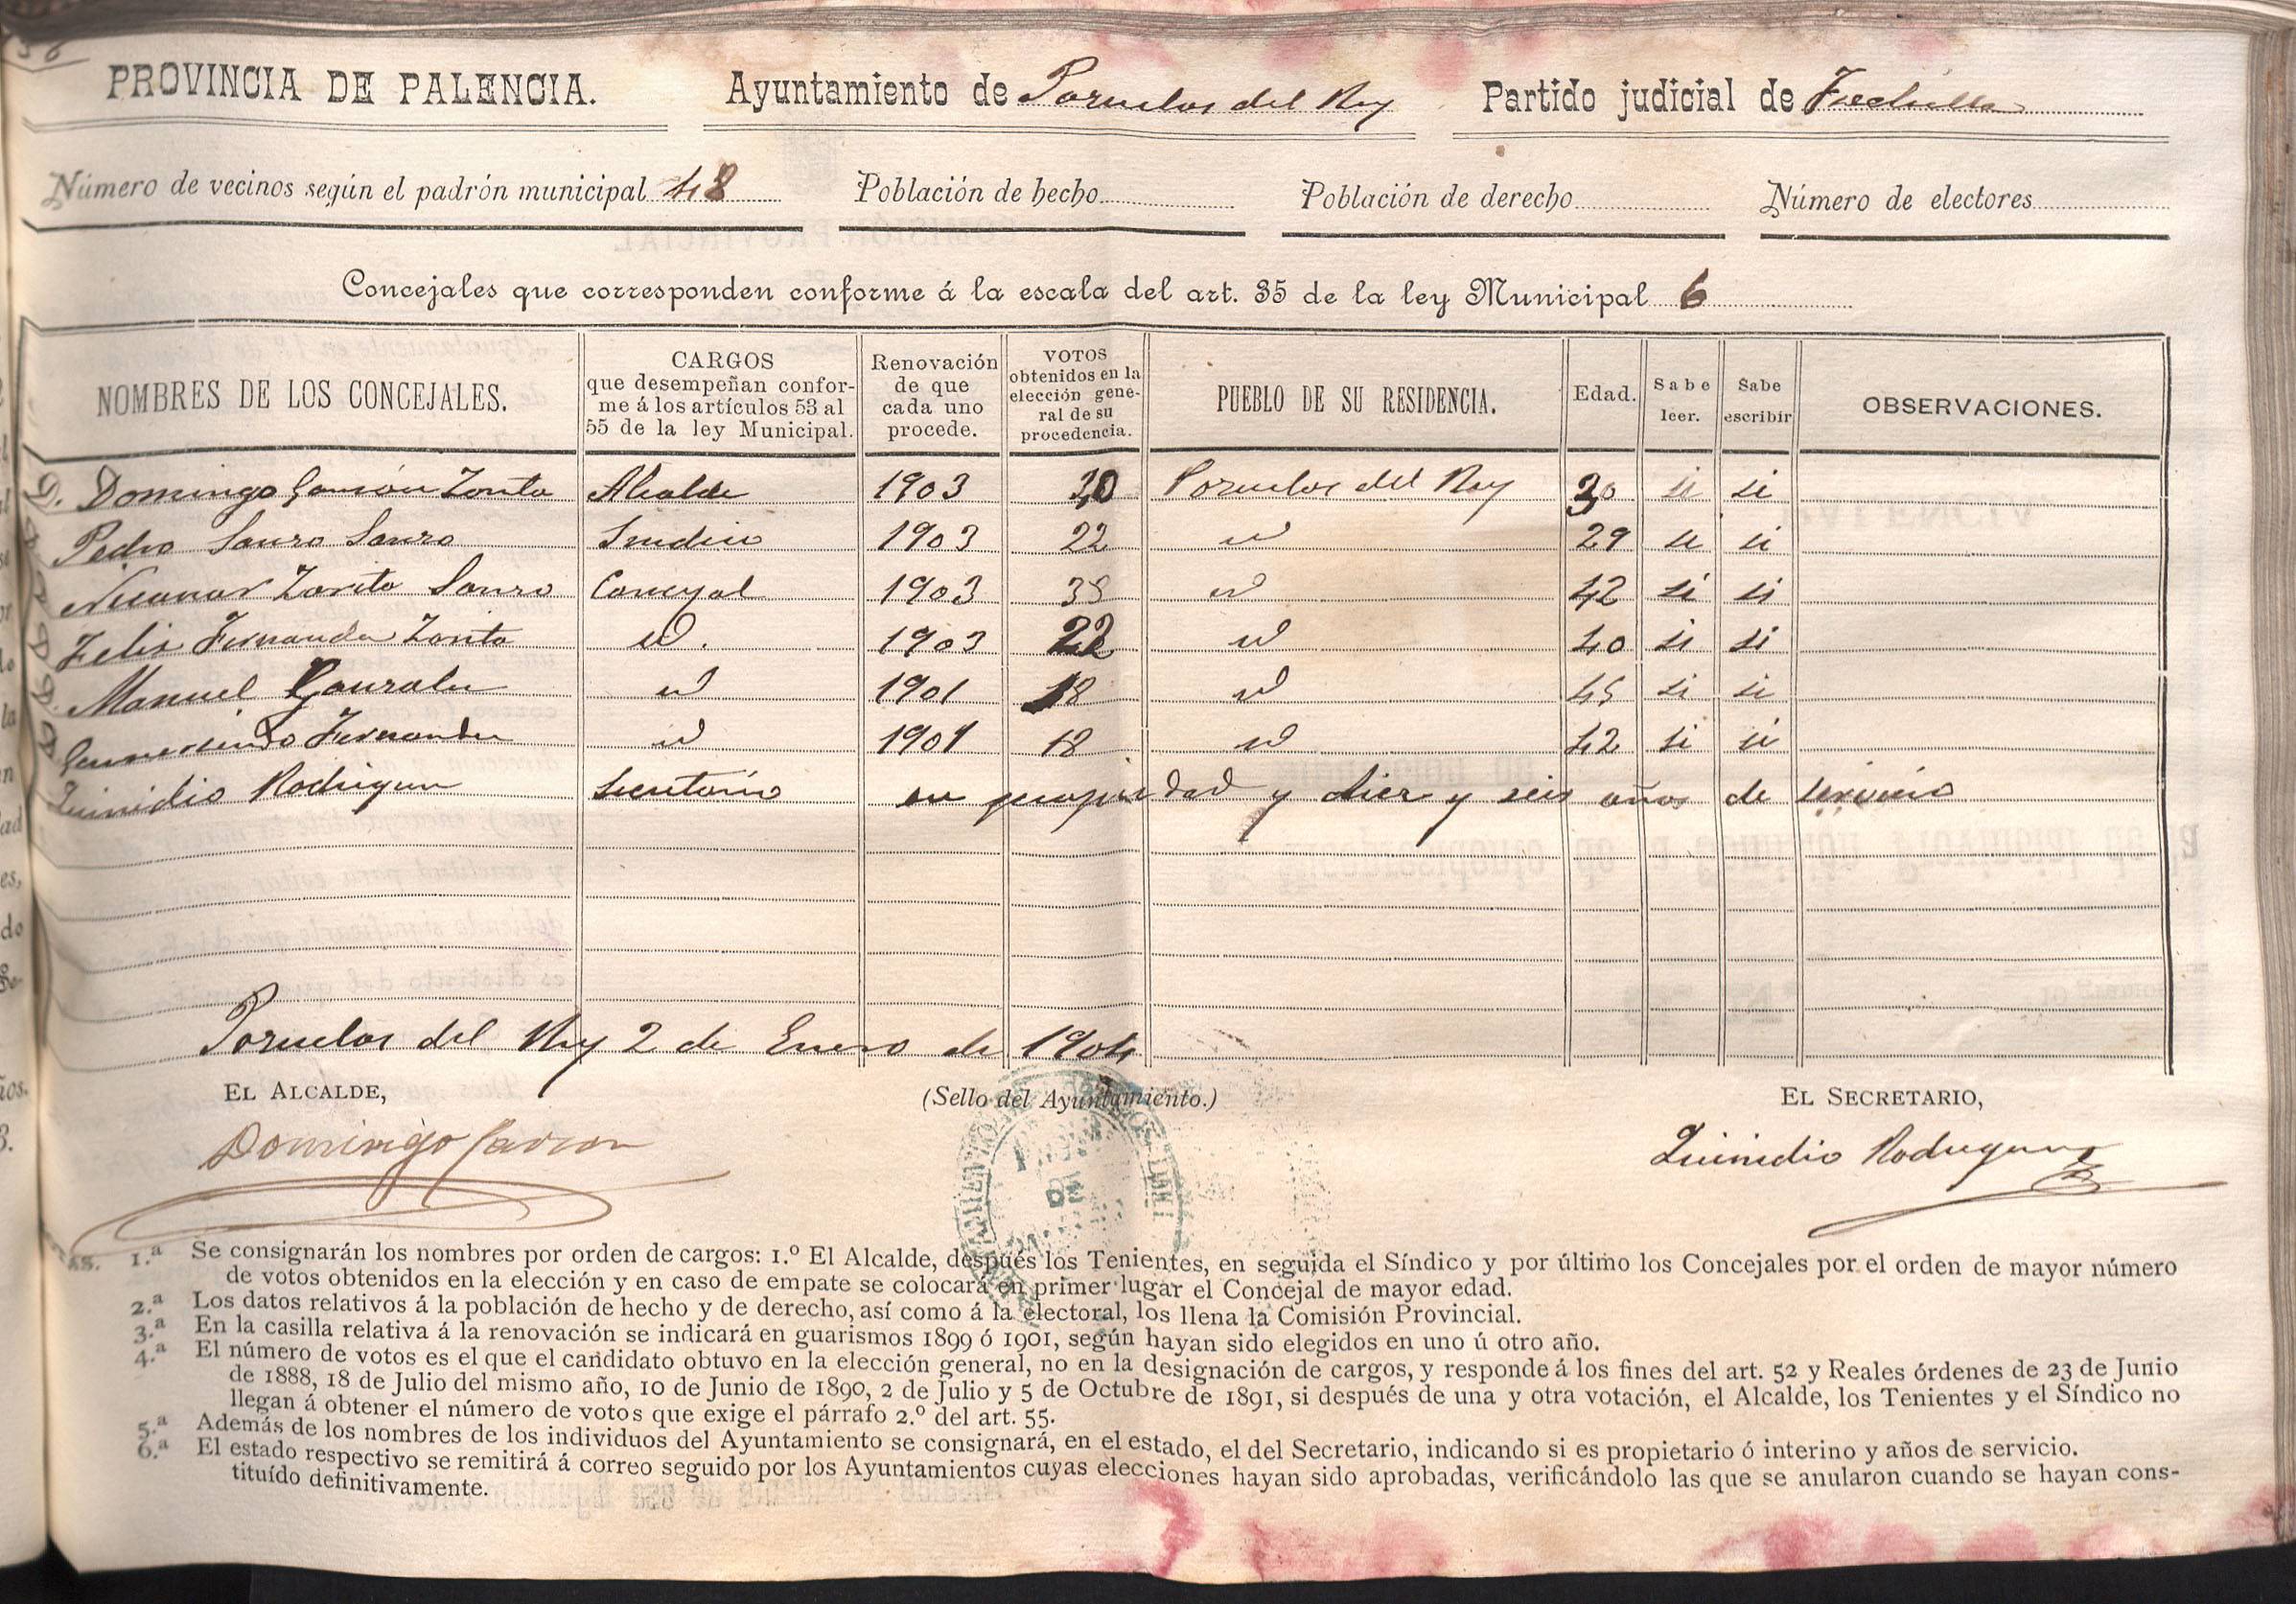 PROVINCIA DE PALENCIA. Ayuntamiento de Pozuelos del Rey Partido judicial de Frechilla
Número de vecinos según el padrón municipal 48 Población de hecho Población de derecho Número de electores
Concejales que corresponden conforme á la escala del art. 35 de la ley Municipal 6
NOMBRES DE LOS CONCEJALES. CARGOS que desempeñan conforme á los artículos 53 al 55 de la ley Municipal. Renovación de que cada uno procede. VOTOS obtenidos en la elección general de su procedencia. PUEBLO DE SU RESIDENCIA. Edad. Sabe leer. Sabe escribir OBSERVACIONES.
D. Domingo Garrión Zorita Alcalde 1903 20 Pozuelos del Rey 30 si si
Pedro Sanzo Sanzo Sindico 1903 22 id 29 si si
Nicanor Zorita Sanzo Concejal 1903 38 id 42 si si
Felix Fernandez Zorita id. 1903 22 id 40 si si
Manuel Gonzalez id 1901 18 id 45 si si
Gumersindo Fernandez id 1901 18 id 42 si si
Quinidio Rodriguez Secretario en propiedad y diez y seis años de servicio
Pozuelos del Rey 2 de Enero de 1904
EL ALCALDE, (Sello del Ayuntamiento.) EL SECRETARIO,
Domingo Quinidio Rodriguez
1.ª Se consignarán los nombres por orden de cargos: 1.º El Alcalde, después los Tenientes, en seguida el Síndico y por último los Concejales por el orden de mayor número
de votos obtenidos en la elección y en caso de empate se colocará en primer lugar el Concejal de mayor edad.
2.ª Los datos relativos á la población de hecho y de derecho, así como á la electoral, los llena la Comisión Provincial.
3.ª En la casilla relativa á la renovación se indicará en guarismos 1899 ó 1901, según hayan sido elegidos en uno ú otro año.
4.ª El número de votos es el que el candidato obtuvo en la elección general, no en la designación de cargos, y responde á los fines del art. 52 y Reales órdenes de 23 de Junio
de 1888, 18 de Julio del mismo año, 10 de Junio de 1890, 2 de Julio y 5 de Octubre de 1891, si después de una y otra votación, el Alcalde, los Tenientes y el Síndico no
llegan á obtener el número de votos que exige el párrafo 2.º del art. 55.
5.ª Además de los nombres de los individuos del Ayuntamiento se consignará, en el estado, el del Secretario, indicando si es propietario ó interino y años de servicio.
6.ª El estado respectivo se remitirá á correo seguido por los Ayuntamientos cuyas elecciones hayan sido aprobadas, verificándolo las que se anularon cuando se hayan cons-
tituído definitivamente.